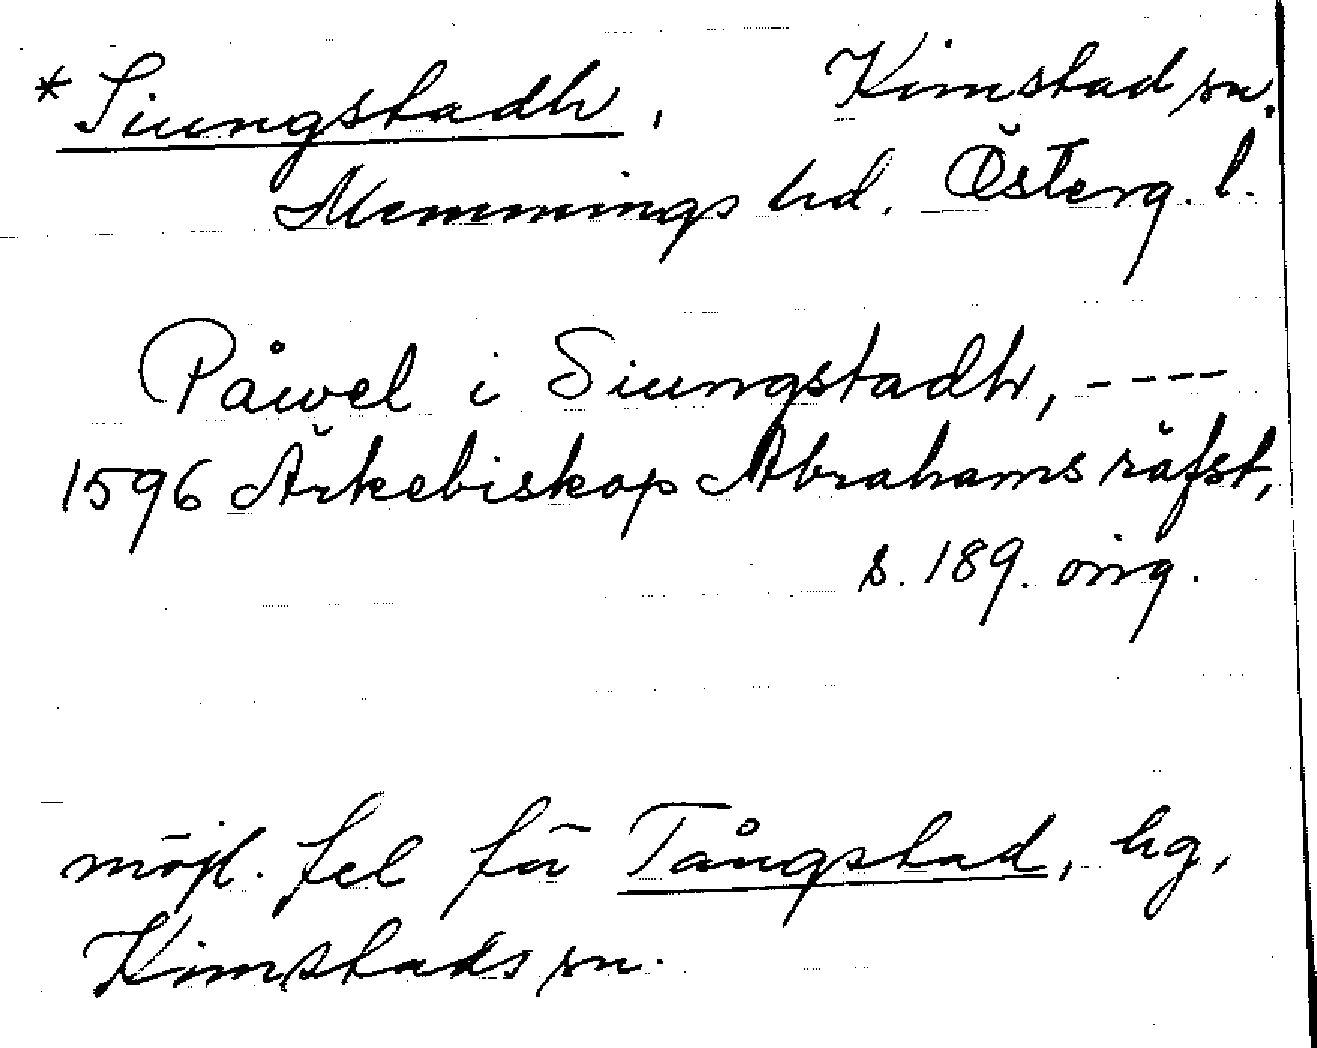 * Siungstadh, Kimstad sn.
Memmings hd. Österg. l.
Påwel i Siungstadh, ----
1596 Ärkebiskop Abrahams räfst,
s. 189. orig.
möjl. fel för Tångstad, hg,
Kimstads sn.